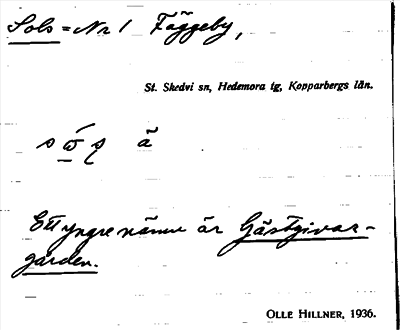 Sols = Nr 1 Fäggeby,
St. Skedvi sn, Hedemora tg, Kopparbergs län.
ä
Ett yngre namn är Gästgivar-
gården.
OLLE HILLNER, 1936.